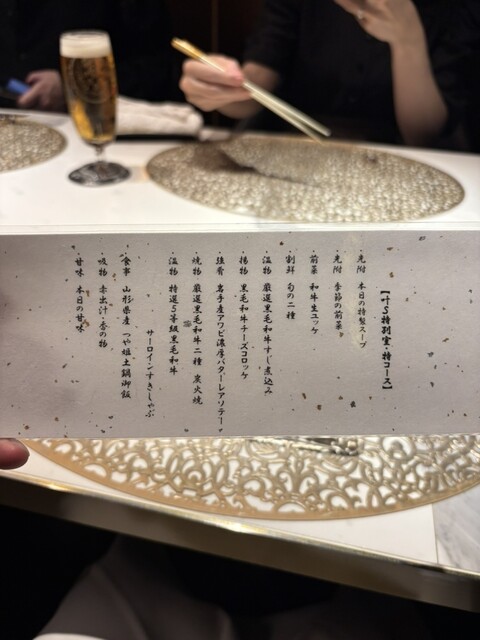 【叶S特別室・特コース】
・先附 本日の特製スープ
・先附 季節の前菜
・前菜 和牛生ユッケ
・割鮮 旬の二種
・温物 厳選黒毛和牛すじ煮込み
・揚物 黒毛和牛チーズコロッケ
・強肴 岩手産アワビ濃厚バターレアソテー
・焼物 厳選黒毛和牛二種 炭火焼
・温物 特選5等級黒毛和牛
サーロインすきしゃぶ
・食事 山形県産 つや姫土鍋御飯
・吸物 赤出汁・香の物
・甘味 本日の甘味